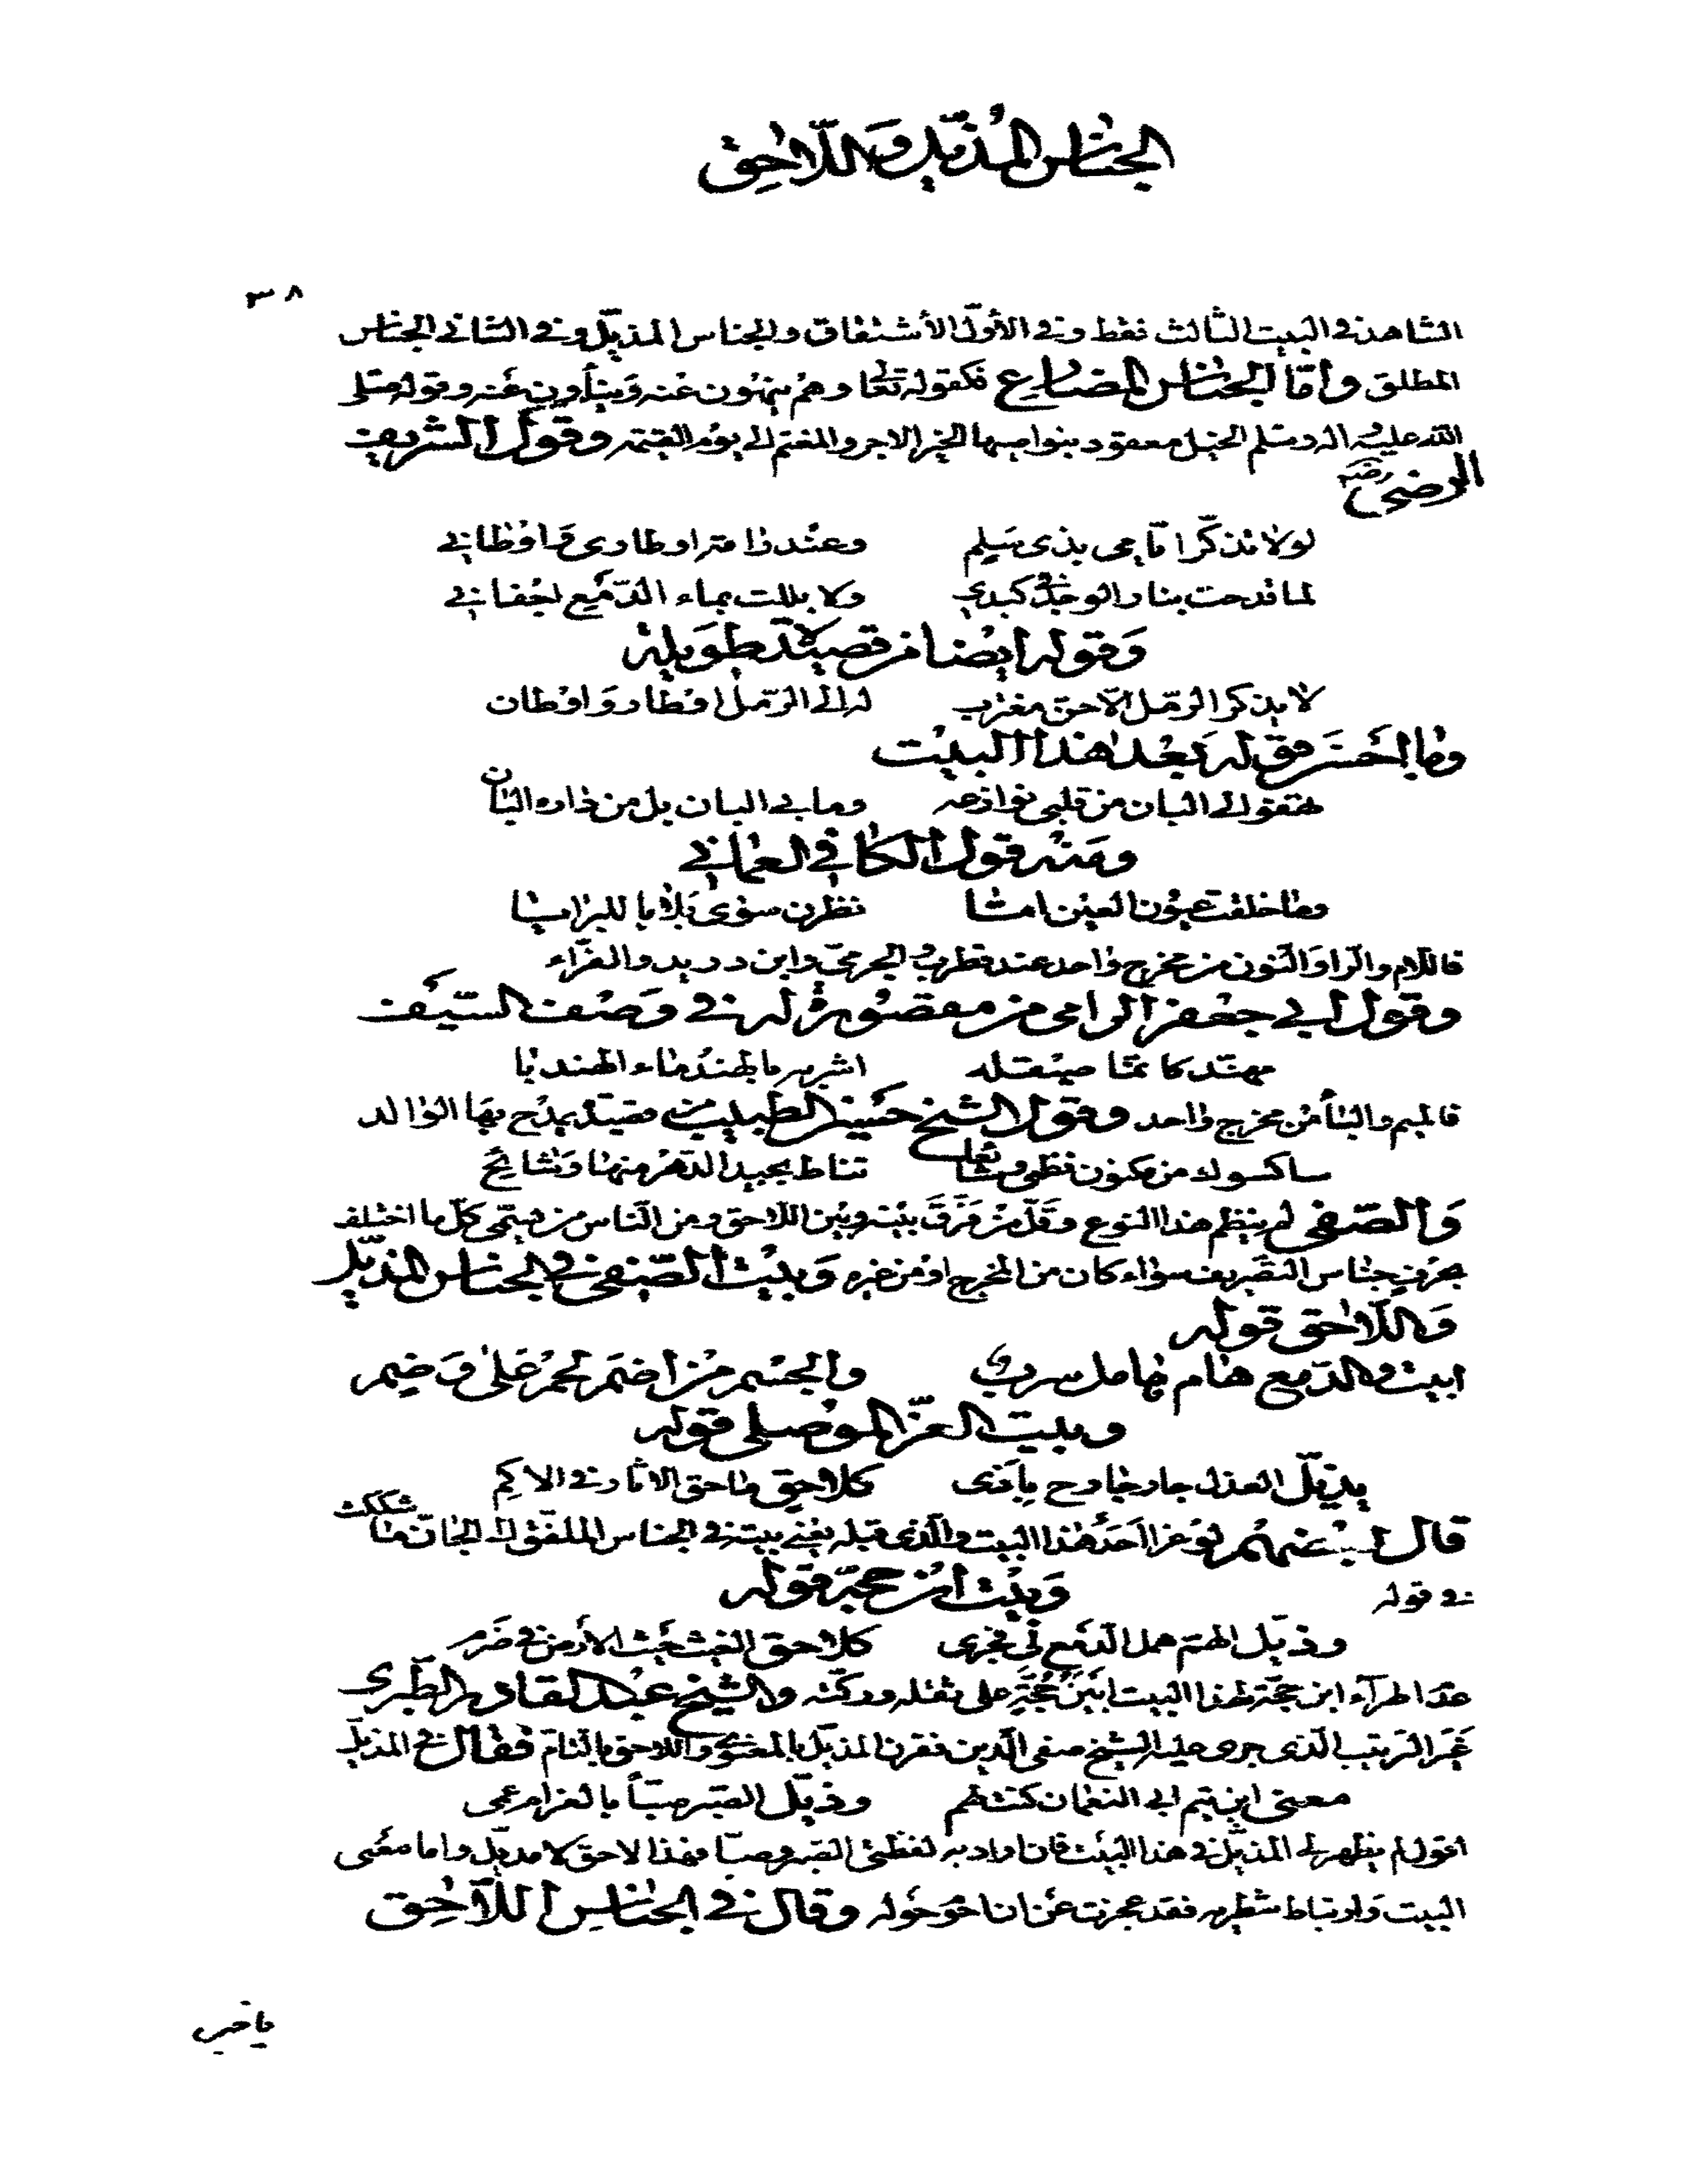 الجناس المُذيّل وَاللّاحِق
٣٨
الشاهد في البيت الثالث فقط وفي الأوّل الأشتقاق والجناس المذيّل وفي الثاني الجناس
المطلق وامّا الجناس المضارع فكقوله تعالى وهم ينهون عنه وَينأون عنه وقوله صلى
الله عليه واله وسلم الخيل معقود بنواصيها الخير الاجر والمغنم الى يوم القيمة وقول الشريف
الرضيّ رضي
لولا تذكّر ايّامي بذي سَلم وعند رامة اوطاري وَاوطاني
لما قدحت بنار الوجد في كبدي ولا بللت بماء الدّمع اجفاني
وَقوله ايضا من قصيدة طويله
لا يذكر الرمل الّا حنّ مغترب له الى الرّمل اوطار وَاوطان
وما احسن قوله بَعد هذا البيت
تهفو الى البان من قلبي نوازعه وما بي البان بل من داره البان
ومنه قول الكافي العماني
وما خلقت عيون العين امّا نظرن سوى بَلايا للبرايا
فاللام والرا وَالنون من مخرج واحد عند قطرب والجرميّ وابن دريد والفرّاء
وقول ابي جعفر الرامي من مقصورة له في وَصف السّيف
مهنّد كانّما صيقله اشربه بالهند ماء الهندبا
فالميم والبأ من مخرج واحد وقول الشيخ حسين الطبيب من قصيدة يمدح بها الوالد
ساكسوك من مكنون نظمي تناط بجيد الدّهر منها وَشائح
وَالصّفي لم ينظم هذا النوع وقلّ من فَرّقَ بينه وبين اللاحق ومن النّاس من يسمّي كلّ ما اختلف
بحرفٍ جناس التصريف سواء كان من المخرج اوْ من غيره وَبيت الصّفي في الجناس المذيّل
وَاللّاحق قوله
ابيت والدّمع هام هامل سربٌ والجسم من اضم لحمٌ عَلى وَضم
وبيت العزّ الموصلي قوله
يذيّل العذل جار جارح بأذى كلاحقٍ ماحق الاثار في الاكم
قال بعضهم لو عزا احَد هذا البيت والّذي قبله يعني بيته في الجناس الملفّق الى الجانّ ما شككت
في قوله وَبيت ابن حجّة قوله
وذيّل الهمّ همل الدّمع لي فجرى كلاحق الغيث حَيث الأرض في ضرم
عدّ اطرآء ابن حجّة لهذا البيت ابيَنُ حُجّةٍ على ثقله وركّته والشيخ عبد القادر الطّبري
غَيّر الترتيب الّذي جرى عليه الشيخ صفي الدّين فقرن المذيّل بالمعنويّ وَاللاحق بالتّام فقال في المذيّل
معنى ابن تيم ابي النعمان كنت لهم وذيّل الصّبر صبّاً بالغرام عمى
اقول لم يظهر لي المذيّل في هذا البيت فان اراد به لفظتي الصّبر وصبّا فهذا لاحق لا مذيّل واما معنى
البيت وَارتباط شطريه فقد عجزت عن ان احوم حَوله وقال في الجناسِ اللّاحِق